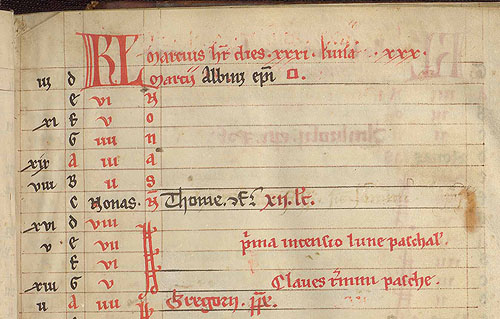 KL Marcius hr̄ dies .xxxi. luna .xxx.
iii d Marcii Albini ep̄i
e vi N
xi f v o
G iiii n
xix A iii a
viii B ii s
c Nonas. N Thome. xii. lc̄.
xvi d viii
v e vii p̄ma incensio lune paschal'
f vi
xiii G v Claues t̄mini pasche.
ii A iiii Gregorii.